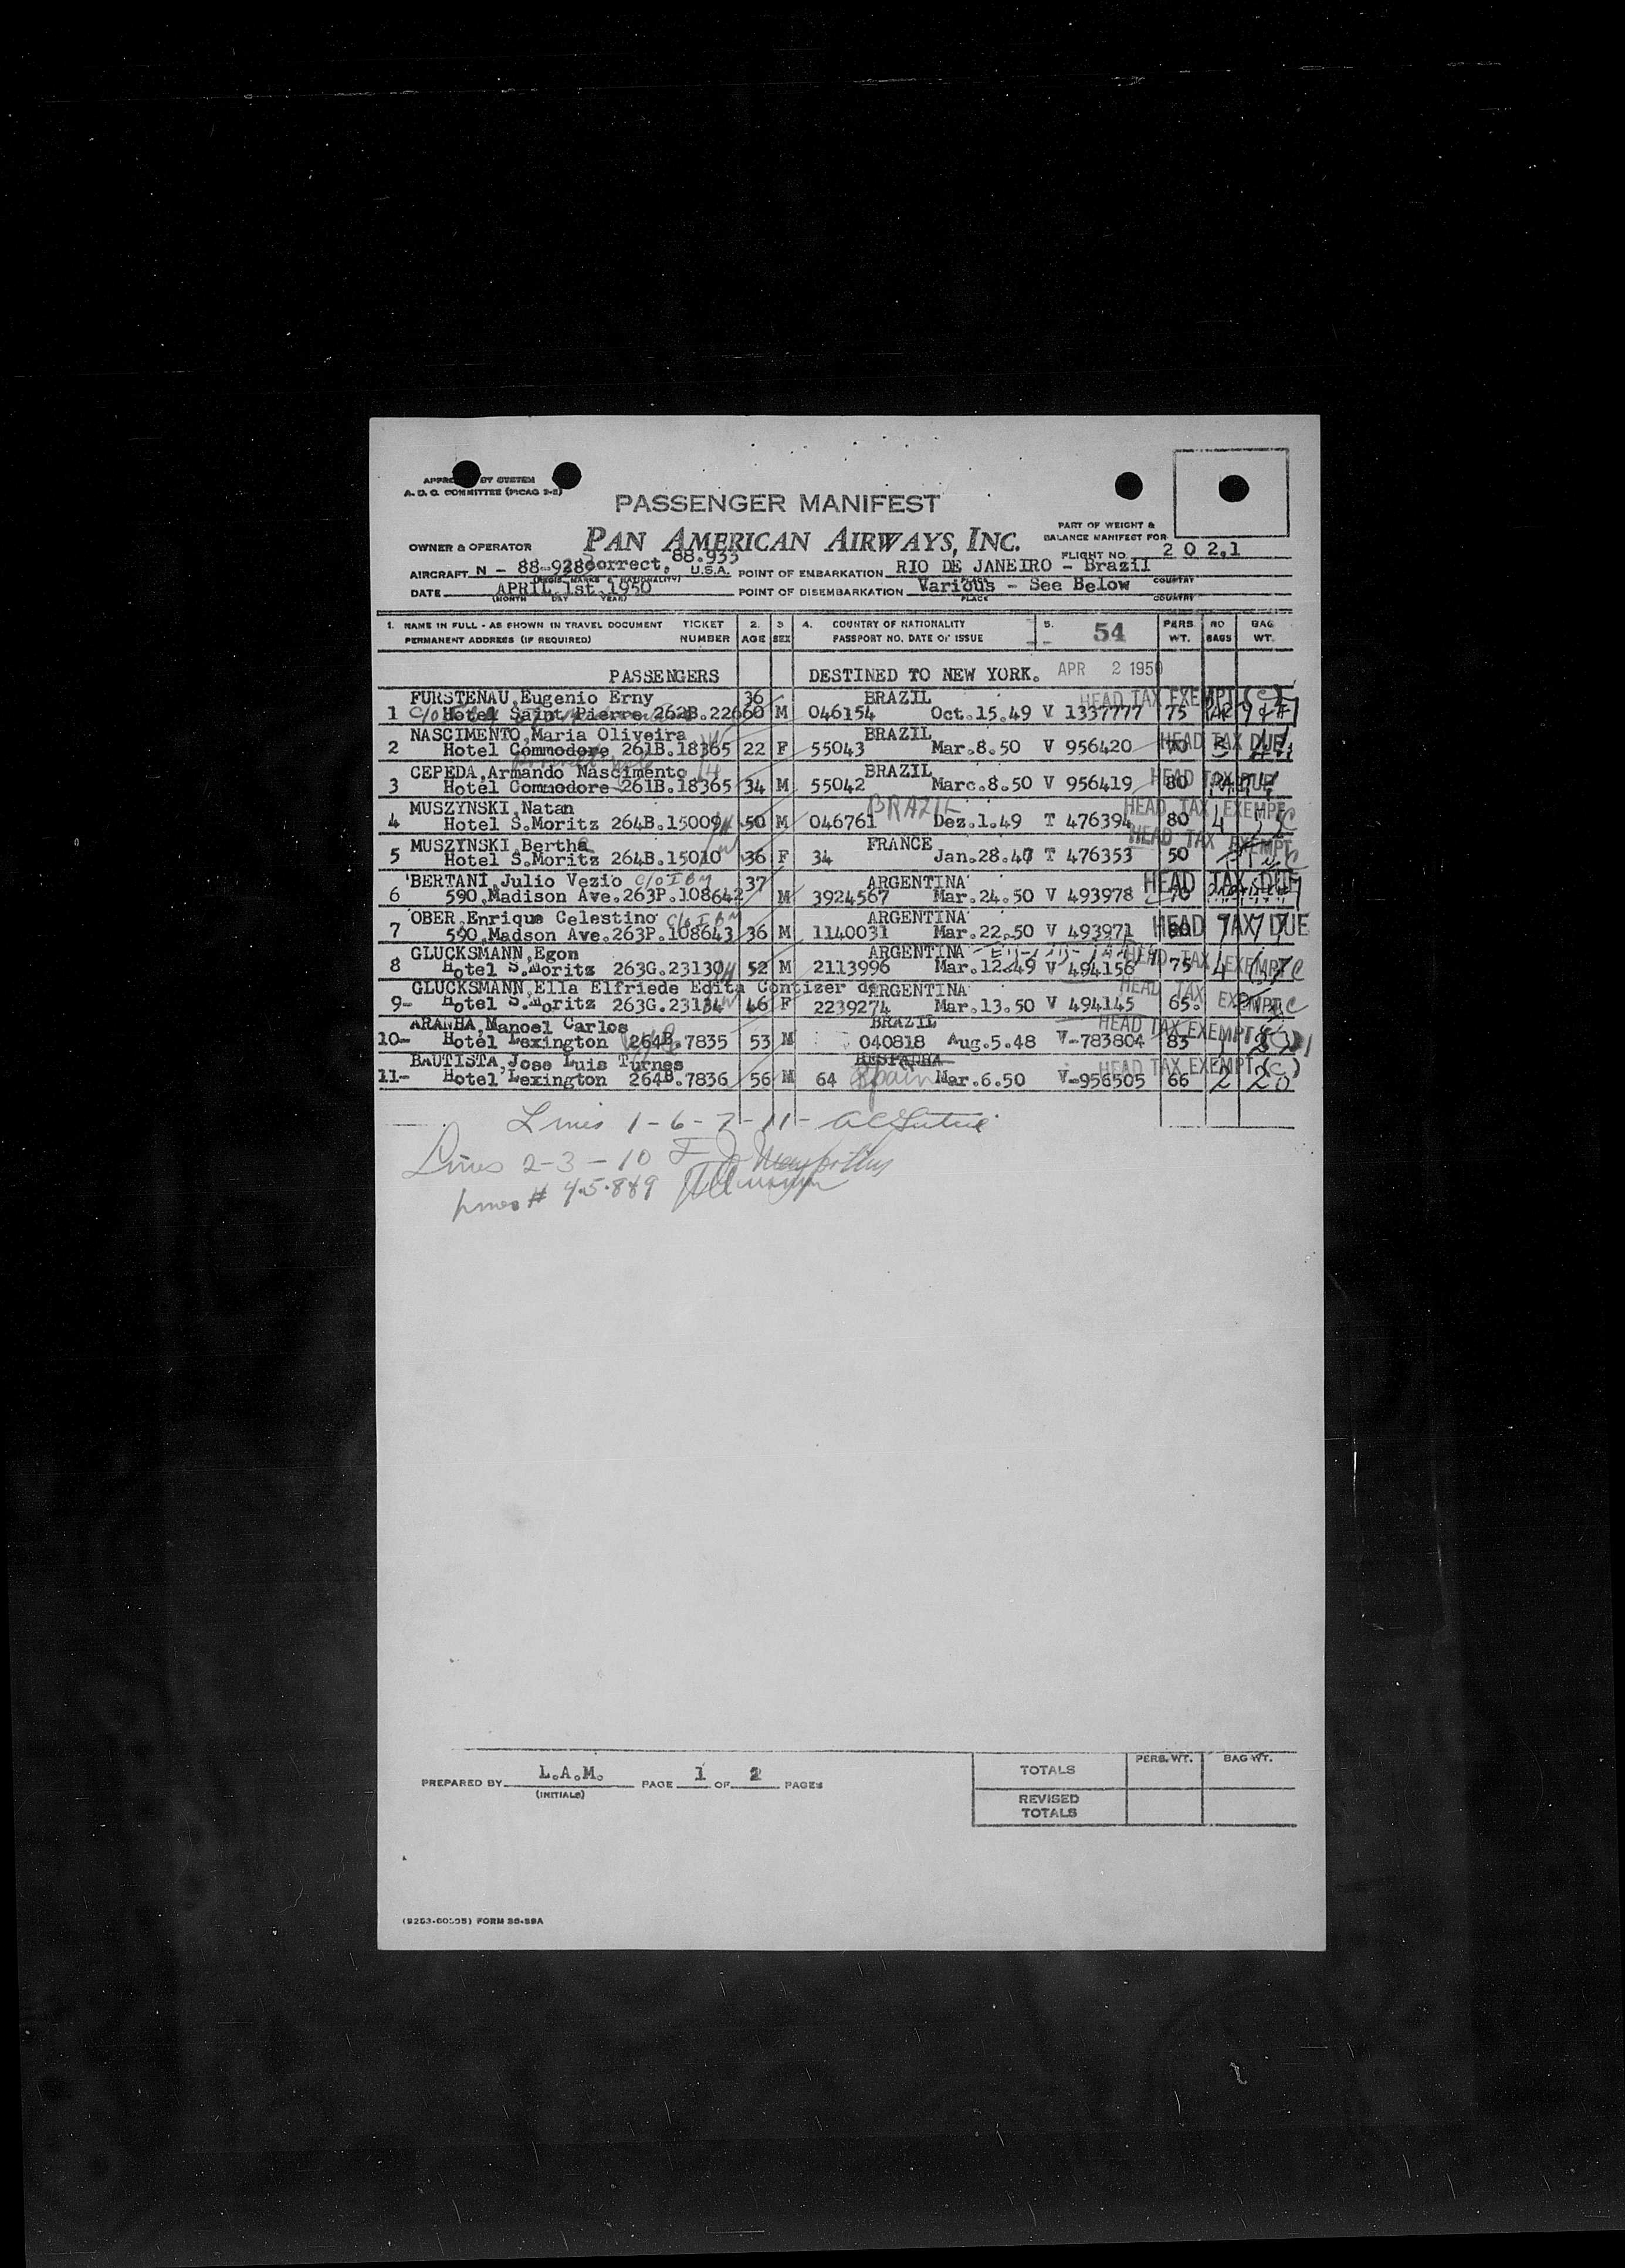 APPRO BY SYSTEM
A. D. C. COMMITTEE (PICAO 2-2)
PASSENGER MANIFEST
PART OF WEIGHT &
BALANCE MANIFEST FOR
OWNER & OPERATOR PAN AMERICAN AIRWAYS, INC. FLIGHT NO. 2 0 2.1
AIRCRAFT N - 88-928 correct. 88.933 U.S.A. POINT OF EMBARKATION RIO DE JANEIRO - Brazil
(REGIS. MARKS & NATIONALITY) PLACE COUNTRY
DATE APRIL.1st.1950 POINT OF DISEMBARKATION Various - See Below
(MONTH DAY YEAR) PLACE COUNTRY
1. NAME IN FULL - AS SHOWN IN TRAVEL DOCUMENT TICKET 2. 3 4. COUNTRY OF NATIONALITY 5. 54 PERS NO BAG
PERMANENT ADDRESS (IF REQUIRED) NUMBER AGE SEX PASSPORT NO. DATE OF ISSUE WT. BAGS WT.
PASSENGERS DESTINED TO NEW YORK. APR 2 1950
FURSTENAU,Eugenio Erny 36 BRAZIL HEAD TAX EXEMPT (C)
1 c/o Hotel Saint Pierre 262B.22660 M 046154 Oct.15.49 V 1337777 75
NASCIMENTO,Maria Oliveira BRAZIL
2 Hotel Commodore 261B.18365 22 F 55043 Mar.8.50 V 956420 70 3 HEAD TAX DUE
CEPEDA,Armando Nascimento BRAZIL
3 Hotel Commodore 261B.18365 34 M 55042 Marc.8.50 V 956419 80 HEAD TAX DUE
MUSZYNSKI,Natan BRAZIL HEAD TAX EXEMPT
4 Hotel S.Moritz 264B.15009 50 M 046761 Dez.1.49 T 476394 80 4
MUSZYNSKI,Bertha FRANCE HEAD TAX EXEMPT
5 Hotel S.Moritz 264B.15010 36 F 34 Jan.28.47 T 476353 50
BERTANI,Julio Vezio c/o IBM 37 ARGENTINA HEAD TAX DUE
6 590,Madison Ave.263P.108642 M 3924567 Mar.24.50 V 493978 70
OBER,Enrique Celestino c/o IBM ARGENTINA
7 590,Madson Ave.263P.108643 36 M 1140031 Mar.22.50 V 493971 HEAD TAX DUE
GLUCKSMANN,Egon ARGENTINA HEAD TAX EXEMPT C
8 Hotel S.Moritz 263G.23130 52 M 2113996 Mar.12.49 V 494156 75 4
GLUCKSMANN,Ella Elfriede Edita Contizer de ARGENTINA HEAD TAX EXEMPT C
9- Hotel S.Moritz 263G.23134 46 F 2239274 Mar.13.50 V 494145 65.
ARANHA,Manoel Carlos BRAZIL HEAD TAX EXEMPT
10- Hotel Lexington 264B.7835 53 M 040818 Aug.5.48 V-783804 83
BAUTISTA,Jose Luis Turnes HESPANHA HEAD TAX EXEMPT (C)
11- Hotel Lexington 264B.7836 56 M 64 Spain Mar.6.50 V-956505 66 2 20
Lines 1-6-7-11-
Lines 2-3-10
Lines # 4.5.8&9
PREPARED BY L.A.M. PAGE 1 OF 2 PAGES
(INITIALS)
PERS. WT. BAG WT.
TOTALS
REVISED
TOTALS